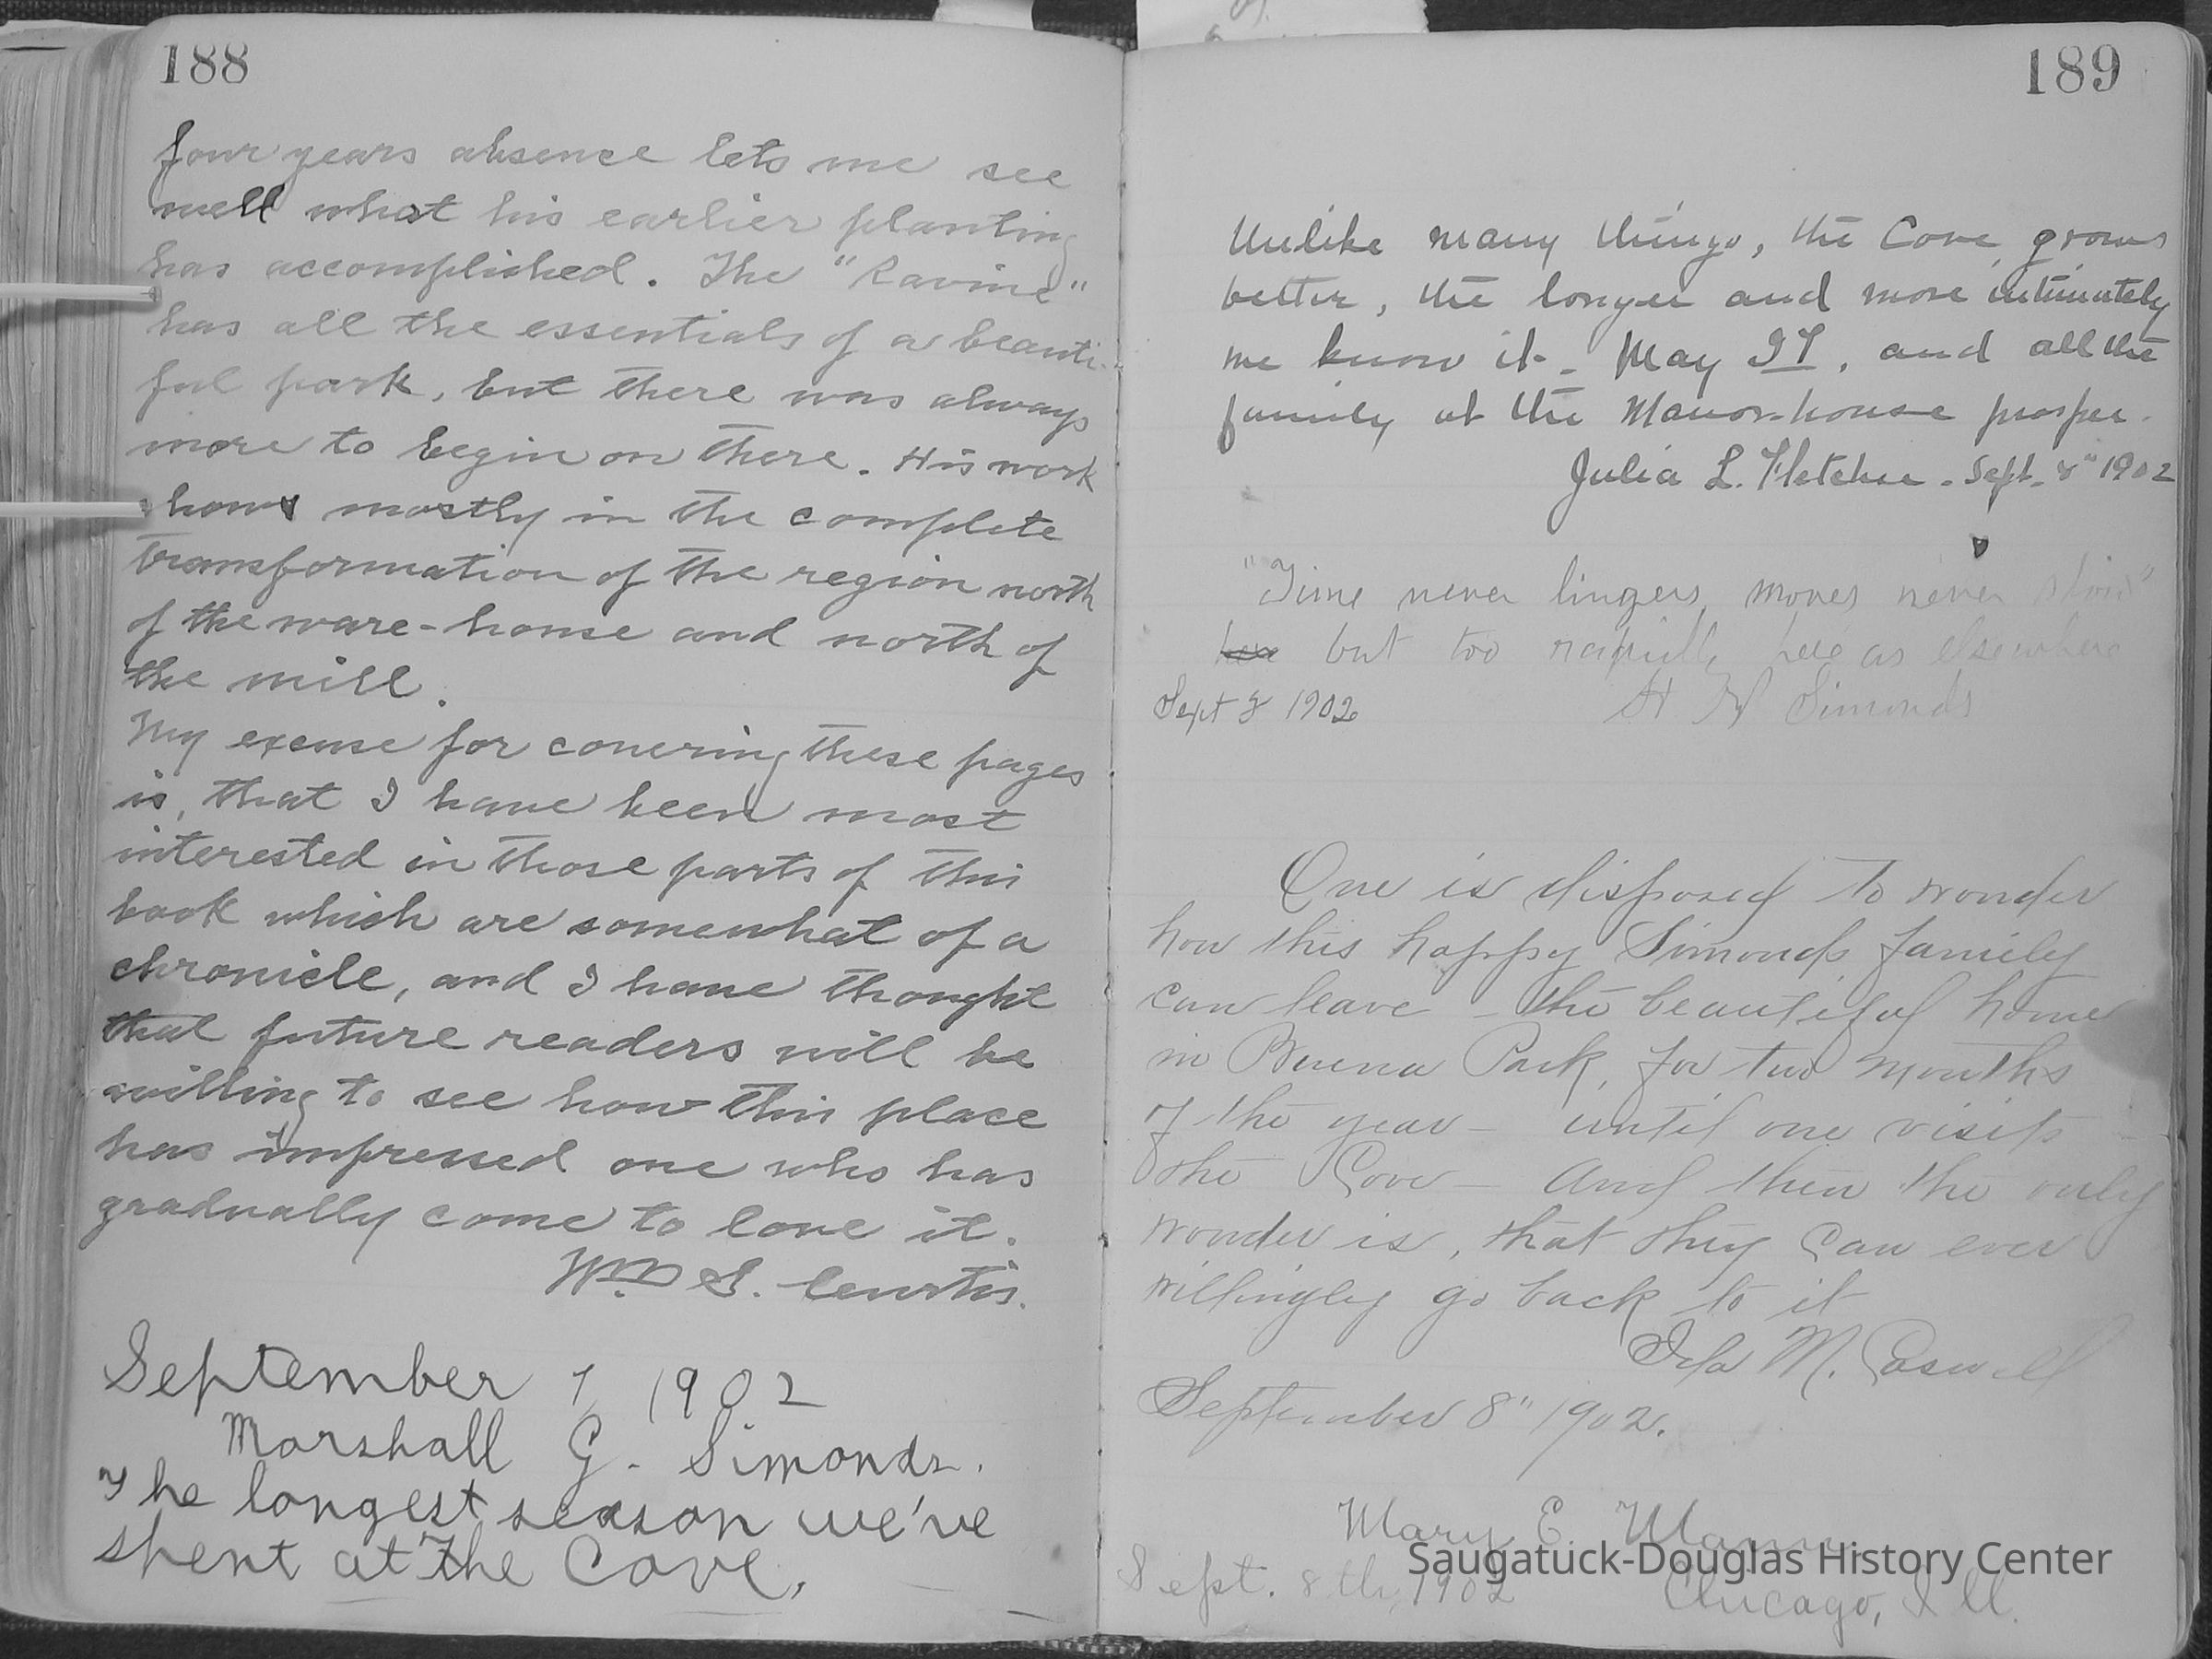 188
four years absence lets me see
well what his earlier planting
has accomplished. The "Ravine"
has all the essentials of a beauti-
ful park, but there was always
more to begin on there. His work
shows mostly in the complete
transformation of the region north
of the ware-house and north of
the mill.
My excuse for covering these pages
is, that I have been most
interested in those parts of this
book which are somewhat of a
chronicle, and I have thought
that future readers will be
willing to see how this place
has impressed one who has
gradually come to love it.
Wm. S. Curtis.
September 7, 1902
Marshall G. Simonds.
The longest season we've
spent at The Cove.
189
Unlike many things, the Cove, grows
better, the longer and more intimately
we know it. May IT, and all the
family at the Manor-house prosper.
Julia L. Fletcher. Sept. 8" 1902
"Time never lingers, moves never slow"
here but too rapidly here as elsewhere
Sept 8 1902 Simonds
One is disposed to wonder
how this happy Simonds family
can leave - the beautiful home
in Buena Park, for two months
of the year - until one visits
the Cove - And then the only
wonder is, that they can ever
willingly go back to it
Ida M. Caswell
September 8" 1902.
Mary E. Mann
Sept. 8th, 1902 Chicago, Ill.
Saugatuck-Douglas History Center